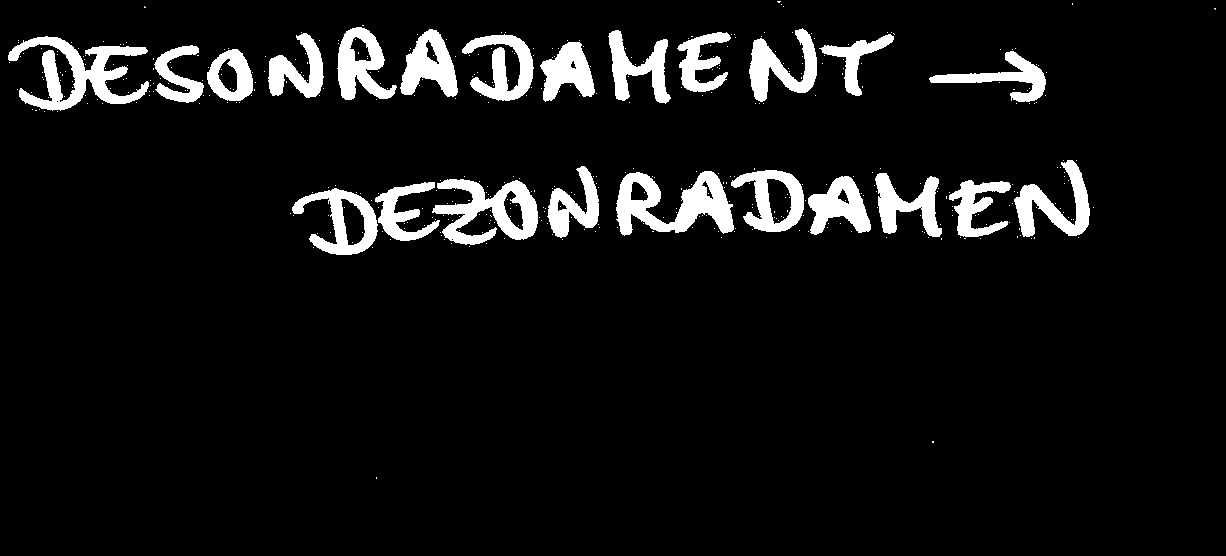 DESONRADAMENT →
DEZONRADAMEN